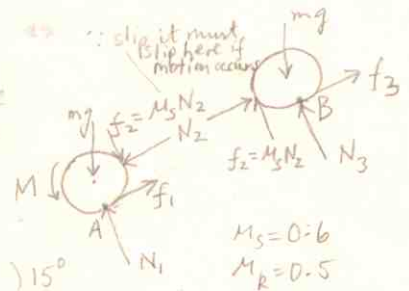 ∵ slip it must
slip here if
motion occurs
mg
B
f₃
f₂ = μₛN₂
N₂
mg
f₂ = μₛN₂
N₃
M
f₁
A
N₁
μₛ = 0.6
) 15°
μ_R = 0.5